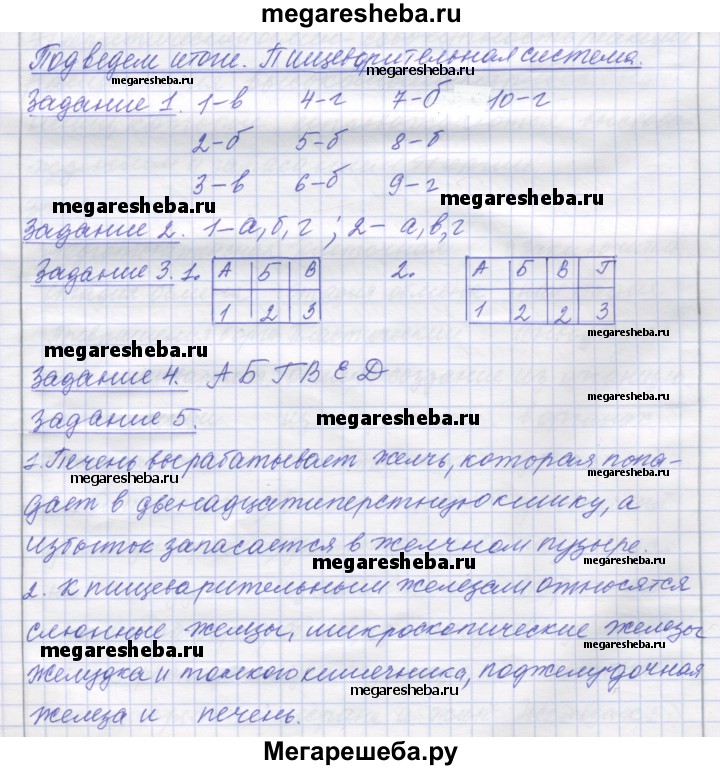 megaresheba.ru
Подведем итоги. Пищеварительная система.
megaresheba.ru megaresheba.ru
Задание 1. 1-в 4-г 7-б 10-г
megaresheba.ru
2-б 5-б 8-б
3-в 6-б 9-г
megaresheba.ru megaresheba.ru
Задание 2. 1-а,б,г ; 2- а,в,г
Задание 3. 1. А Б В 2. А Б В Г
1 2 3 1 2 2 3
megaresheba.ru
megaresheba.ru
Задание 4. А Б Г В Е Д
Задание 5. megaresheba.ru
1. Печень вырабатывает желчь, которая попа-
megaresheba.ru megaresheba.ru
дает в двенадцатиперстную кишку, а
избыток запасается в желчном пузыре.
megaresheba.ru
2. К пищеварительным железам относятся
megaresheba.ru
слюнные желзы, микроскопические железы
megaresheba.ru
желудка и толского кишечника, поджелудочная
megaresheba.ru
желза и печень.
Мегарешеба.ру